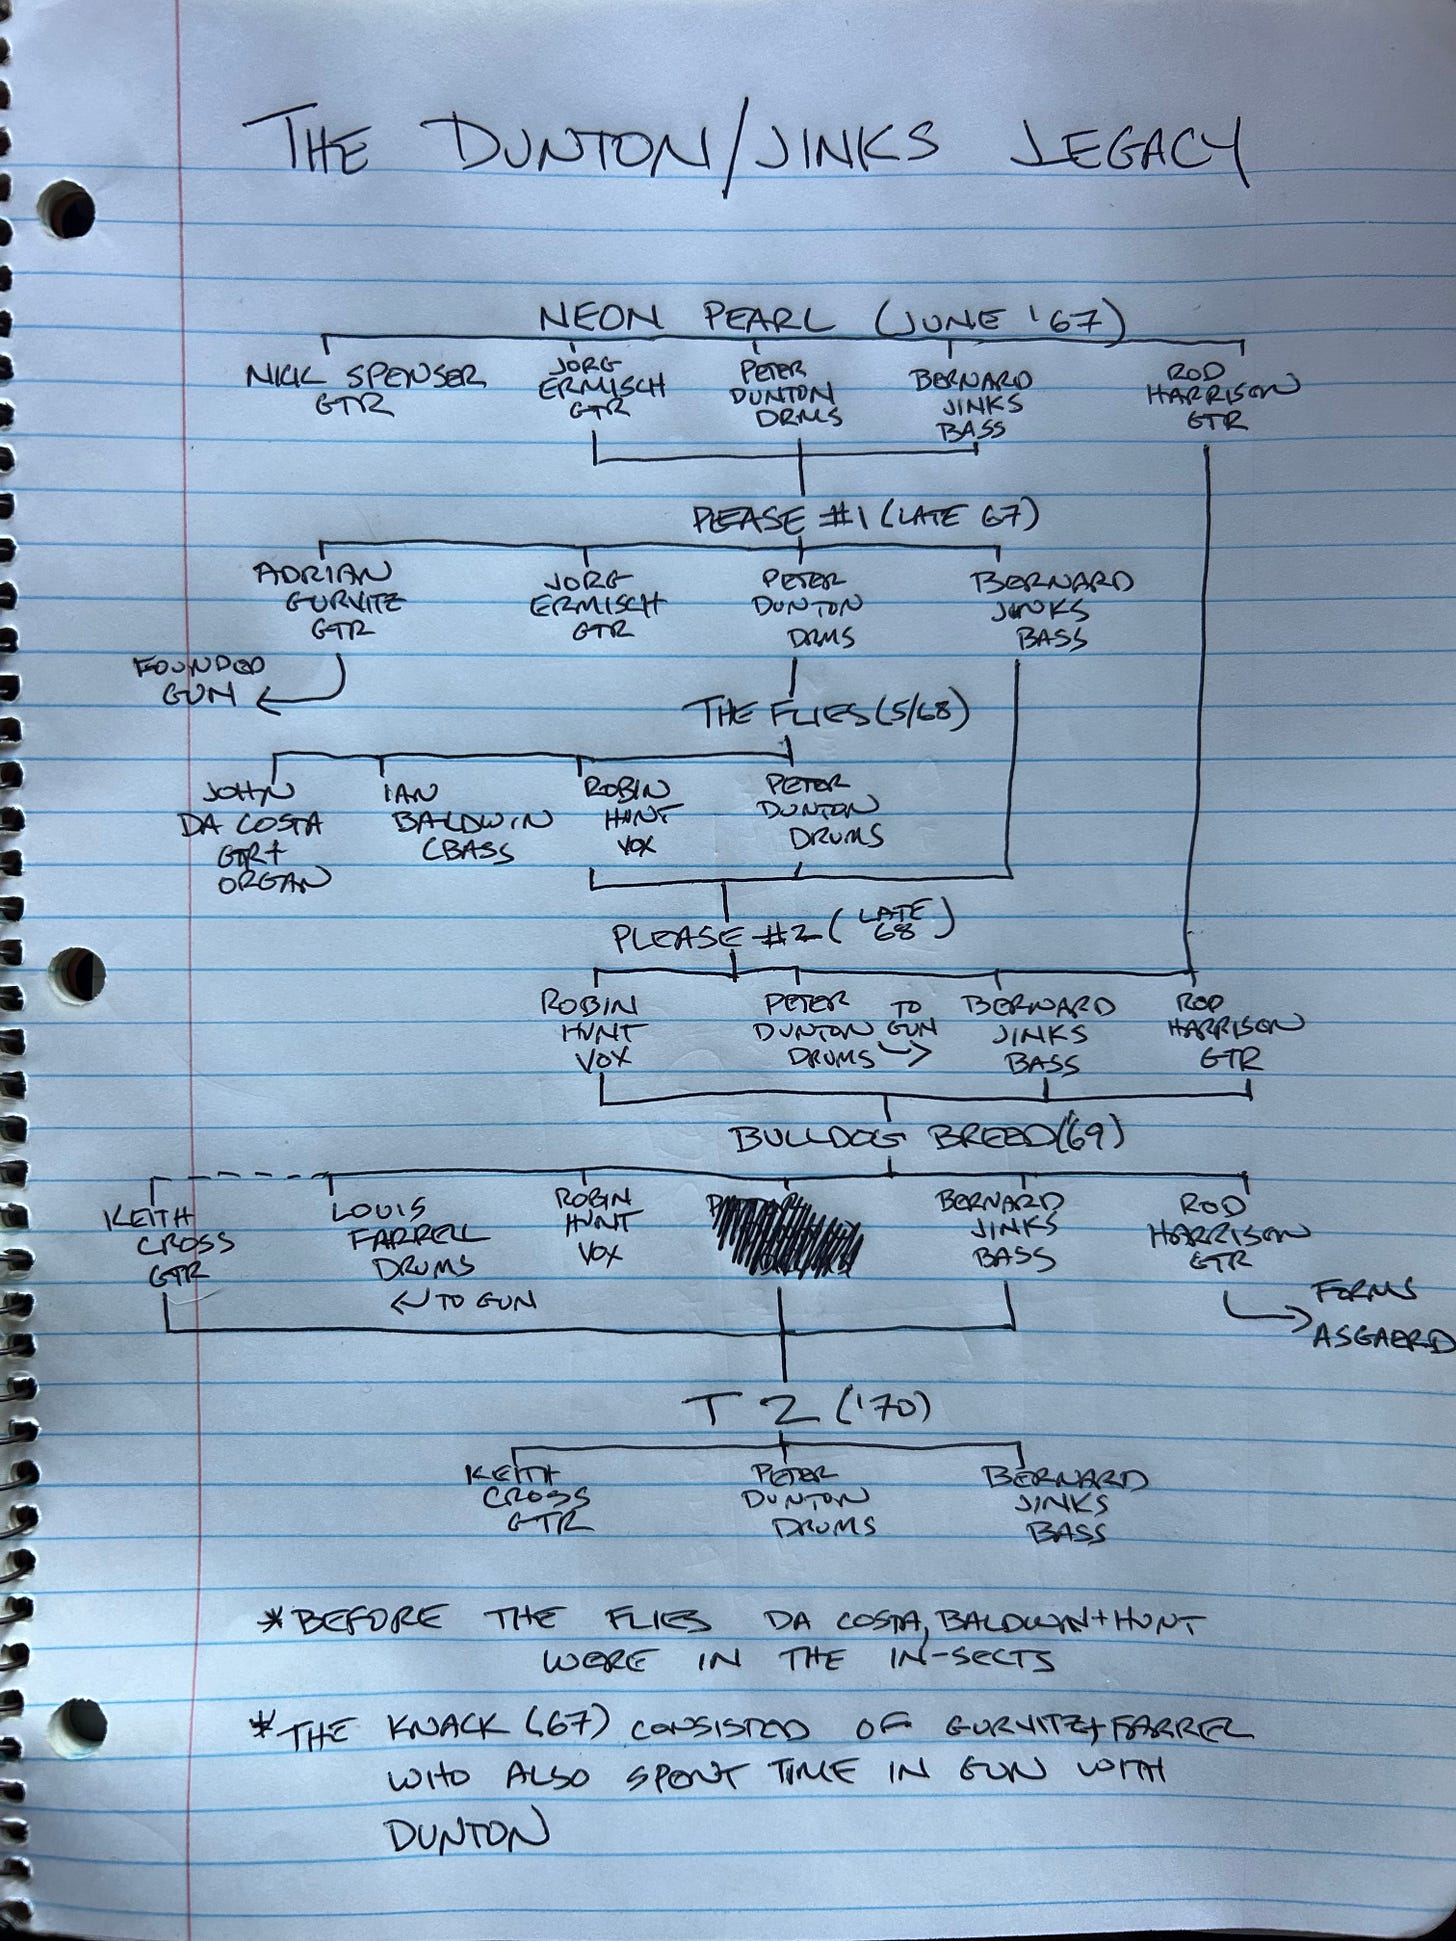 THE DUNTON/JINKS LEGACY
NEON PEARL (JUNE '67)
NICK SPENSER
GTR
JORG
ERMISCH
GTR
PETER
DUNTON
DRMS
BERNARD
JINKS
BASS
ROD
HARRISON
GTR
PLEASE #1 (LATE 67)
ADRIAN
GURVITZ
GTR
JORG
ERMISCH
GTR
PETER
DUNTON
DRMS
BERNARD
JINKS
BASS
FOUNDED
GUN
THE FLIES (5/68)
JOHN
DA COSTA
GTR+
ORGAN
IAN
BALDWIN
CBASS
ROBIN
HUNT
VOX
PETER
DUNTON
DRUMS
PLEASE #2 (LATE
68)
ROBIN
HUNT
VOX
PETER
DUNTON
DRUMS
TO
GUN
BERNARD
JINKS
BASS
ROD
HARRISON
GTR
BULLDOG BREED ('69)
KEITH
CROSS
GTR
LOUIS
FARRELL
DRUMS
TO GUN
ROBIN
HUNT
VOX
BERNARD
JINKS
BASS
ROD
HARRISON
GTR
FORMS
ASGAERD
T2 ('70)
KEITH
CROSS
GTR
PETER
DUNTON
DRUMS
BERNARD
JINKS
BASS
*BEFORE THE FLIES DA COSTA, BALDWIN + HUNT
WERE IN THE IN-SECTS
*THE KNACK ('67) CONSISTED OF GURVITZ + FARREL
WHO ALSO SPENT TIME IN GUN WITH
DUNTON